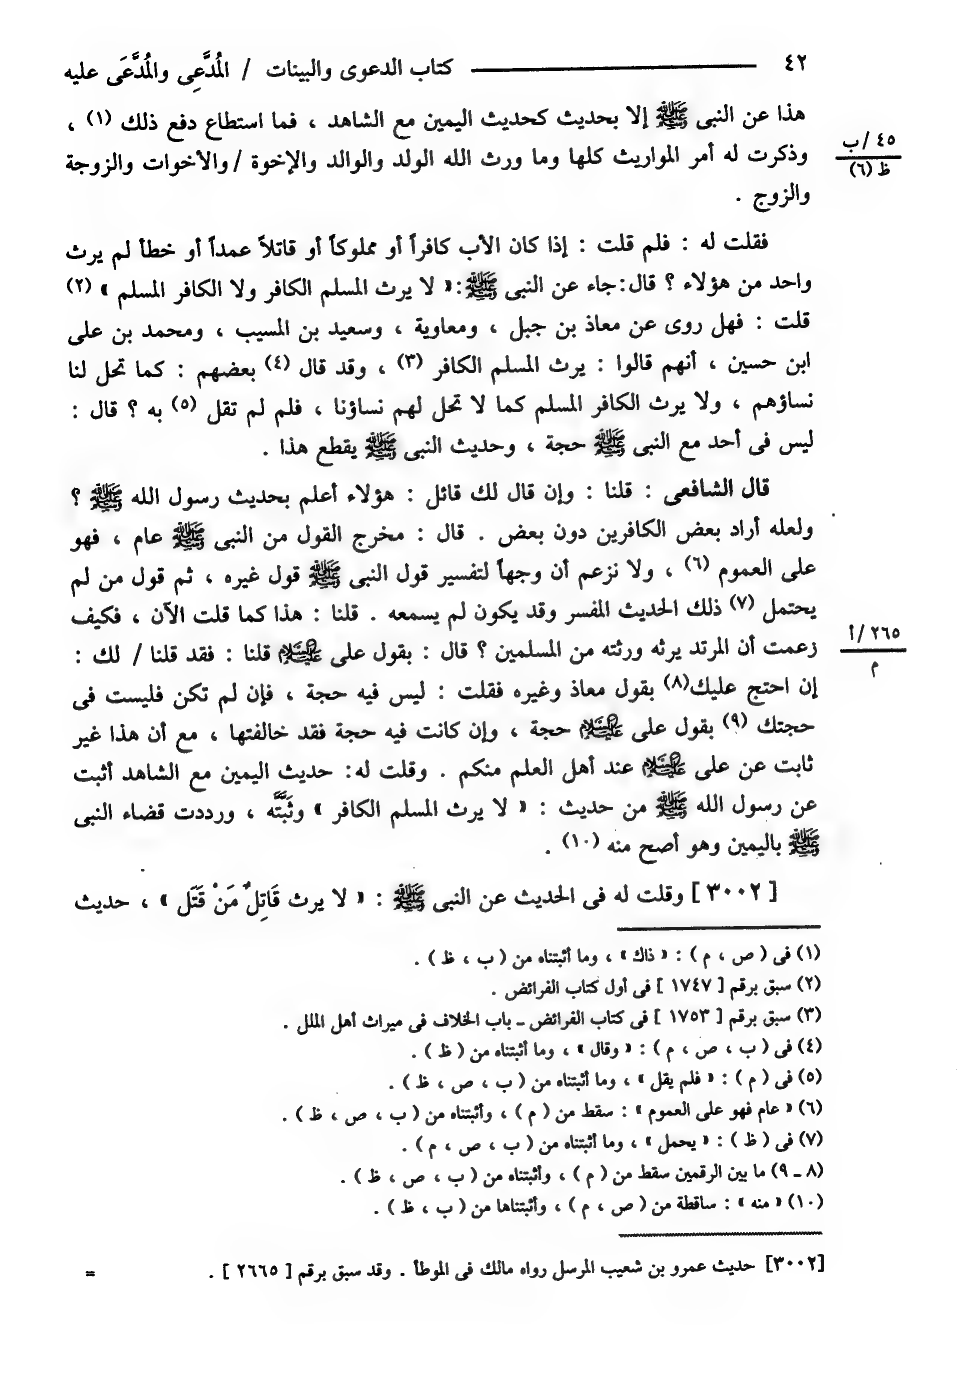 ٤٢ ــــــــــــــــــــ كتاب الدعوى والبينات / المُدَّعِى والمُدَّعَى عليه
هذا عن النبى ﷺ إلا بحديث كحديث اليمين مع الشاهد ، فما استطاع دفع ذلك (١) ،
وذكرت له أمر المواريث كلها وما ورث الله الولد والوالد والإخوة / والأخوات والزوجة
٤٥ /ب
ظ (٦)
والزوج .
فقلت له : فلم قلت : إذا كان الأب كافراً أو مملوكاً أو قاتلاً عمداً أو خطأ لم يرث
واحد من هؤلاء ؟ قال: جاء عن النبى ﷺ: « لا يرث المسلم الكافر ولا الكافر المسلم » (٢)
قلت : فهل روى عن معاذ بن جبل ، ومعاوية ، وسعيد بن المسيب ، ومحمد بن على
ابن حسين ، أنهم قالوا : يرث المسلم الكافر (٣) ، وقد قال (٤) بعضهم : كما تحل لنا
نساؤهم ، ولا يرث الكافر المسلم كما لا تحل لهم نساؤنا ، فلم لم تقل (٥) به ؟ قال :
ليس فى أحد مع النبى ﷺ حجة ، وحديث النبى ﷺ يقطع هذا .
قال الشافعى : قلنا : وإن قال لك قائل : هؤلاء أعلم بحديث رسول الله ﷺ ؟
ولعله أراد بعض الكافرين دون بعض . قال : مخرج القول من النبى ﷺ عام ، فهو
على العموم (٦) ، ولا نزعم أن وجهاً لتفسير قول النبى ﷺ قول غيره ، ثم قول من لم
يحتمل (٧) ذلك الحديث المفسر وقد يكون لم يسمعه . قلنا : هذا كما قلت الآن ، فكيف
زعمت أن المرتد يرثه ورثته من المسلمين ؟ قال : بقول على عليه السلام قلنا : فقد قلنا / لك :
٢٦٥ /أ
م
إن احتج عليك(٨) بقول معاذ وغيره فقلت : ليس فيه حجة ، فإن لم تكن فليست فى
حجتك (٩) بقول على عليه السلام حجة ، وإن كانت فيه حجة فقد خالفتها ، مع أن هذا غير
ثابت عن على عليه السلام عند أهل العلم منكم . وقلت له: حديث اليمين مع الشاهد أثبت
عن رسول الله ﷺ من حديث : « لا يرث المسلم الكافر » وثَبَّتَّه ، ورددت قضاء النبى
ﷺ باليمين وهو أصح منه (١٠) .
[ ٣٠٠٢ ] وقلت له فى الحديث عن النبى ﷺ : « لا يرث قَاتِلٌ مَنْ قَتَل » ، حديث
(١) فى ( ص ، م ) : « ذاك » ، وما أثبتناه من ( ب ، ظ ) .
(٢) سبق برقم [ ١٧٤٧ ] فى أول كتاب الفرائض .
(٣) سبق برقم [ ١٧٥٣ ] فى كتاب الفرائض ــ باب الخلاف فى ميراث أهل الملل .
(٤) فى ( ب ، ص ، م ) : « وقال » ، وما أثبتناه من ( ظ ) .
(٥) فى ( م ) : « فلم يقل » ، وما أثبتناه من ( ب ، ص ، ظ ) .
(٦) « عام فهو على العموم » : سقط من ( م ) ، وأثبتناه من ( ب ، ص ، ظ ) .
(٧) فى ( ظ ) : « يحمل » ، وما أثبتناه من ( ب ، ص ، م ) .
(٨ ــ ٩) ما بين الرقمين سقط من ( م ) ، وأثبتناه من ( ب ، ص ، ظ ) .
(١٠) « منه » : ساقطة من ( ص ، م ) ، وأثبتناها من ( ب ، ظ ) .
[٣٠٠٢] حديث عمرو بن شعيب المرسل رواه مالك فى الموطأ . وقد سبق برقم [ ٢٦٦٥ ] . =